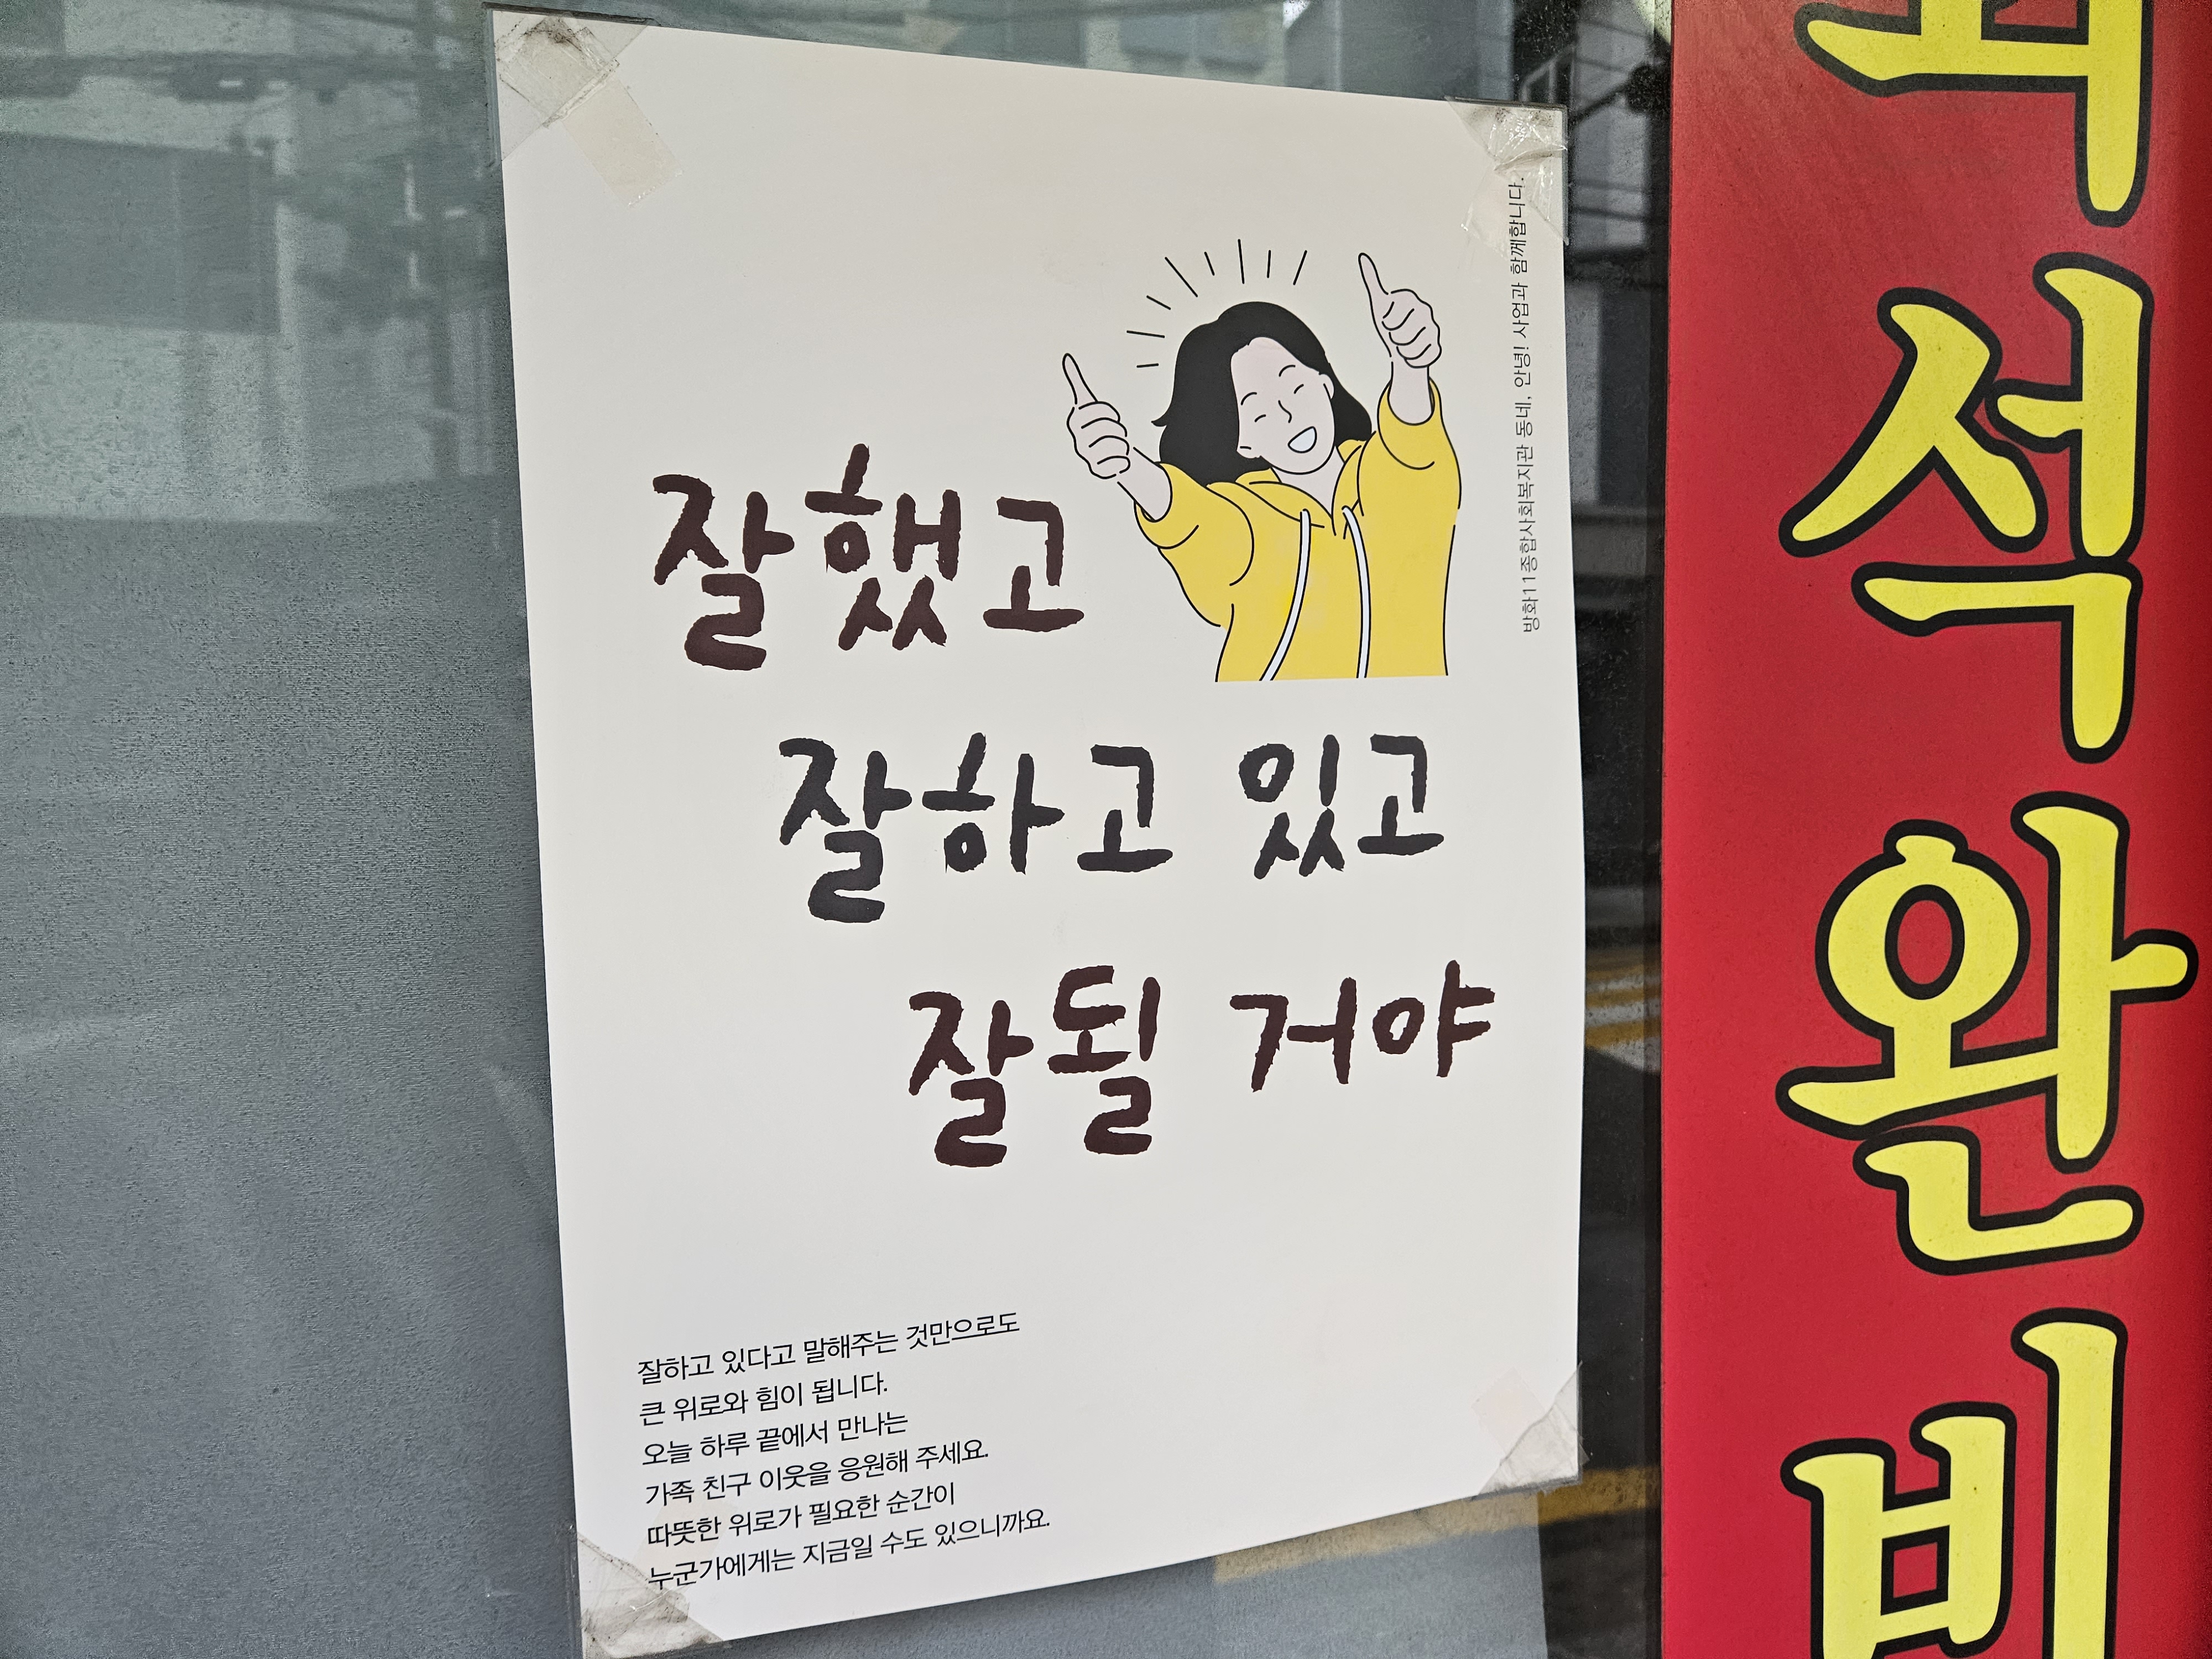 잘했고
잘하고 있고
잘될 거야
잘하고 있다고 말해주는 것만으로도
큰 위로와 힘이 됩니다.
오늘 하루 끝에서 만나는
가족 친구 이웃을 응원해 주세요.
따뜻한 위로가 필요한 순간이
누군가에게는 지금일 수도 있으니까요.
방화11종합사회복지관 동네, 안녕! 사업과 함께합니다.
석
완
비